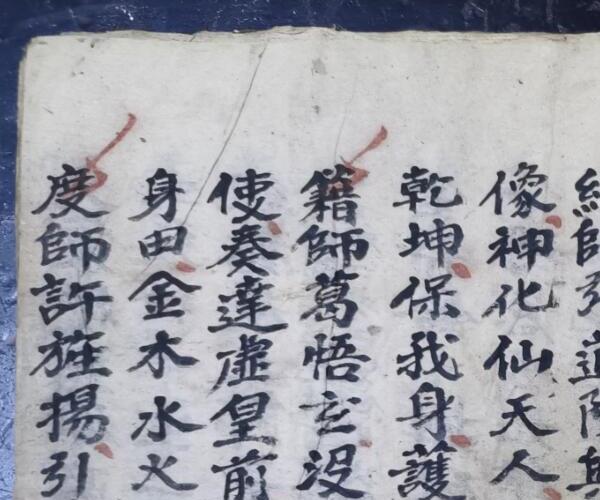 師引進
像神化仙天人
乾坤保我身護
籍師葛悟玄没
使奏達虛皇前
身田金木水火
度師許旌揚引